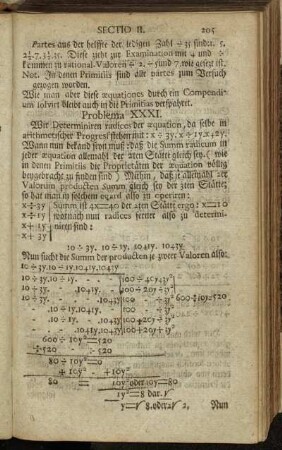 SECTIO II. 205
Partes aus der helffte der ledigen Zahl ÷ 35 findet. 5.
zieht zur Examination mit 4 und ÷
kommen zu rational-Valoren ÷ 2. ÷ 5 und 7. wie gesetzt ist.
Not. In denen Primitiis sind alle partes zum Versuch
gezogen worden.
Wie man aber diese æquationes durch ein Compendi-
um solvirt bleibt auch in die Primitias verspahrt.
Problema XXXI.
Wir Determiniren radices der æquation, da selbe in
arithmetischer Progress stehen mit: x ÷ 3y. x ÷ 1y. x + 2y.
Wann nun bekand seyn muß daß die Summ radicum in
jeder æquation allemahl der 2ten Stätte gleich sey. (wie
in denen Primitiis die Proprietäten der æquation völlig
beygebracht zu finden sind) Mithin, daß je allemahl
Valorum producten Summ gleich sey der 3ten Stätte;
so hat man in solchem egard also zu operirn:
x ÷ 3y Summ ist = 40 der 2ten Stätte ergo: x = 10
x ÷ 1y wornach nun radices ferner also zu determi-
x + 1y niren sind:
x + 3y
10 ÷ 3y. 10 ÷ 1y. 10+1y. 10+3y
Nun sucht die Summ der producten je zweer Valoren also:
10 ÷ 3y. 10 ÷ 1y. 10+1y. 10+3y
10 ÷ 3y. 10 ÷ 1y. 100 ÷ 40y + 3y²
10 ÷ 3y. 10+1y.
10 ÷ 3y. 10+3y 600 ÷ 10y² = 520
10 ÷ 1y. 10+1y.
10 ÷ 1y. 10+3y 100 + 20y ÷ 3y²
10+1y. 10+3y 100 + 40y + 3y²
600 ÷ 10y² = 520
÷ 520 ÷ 520
80 ÷ 10y² = 0
+ 10y² + 10y²
80 = 10y² oder 10y² = 80
1y² = 8 dar. √
y = √ 8. oder 2√ 2, Nun